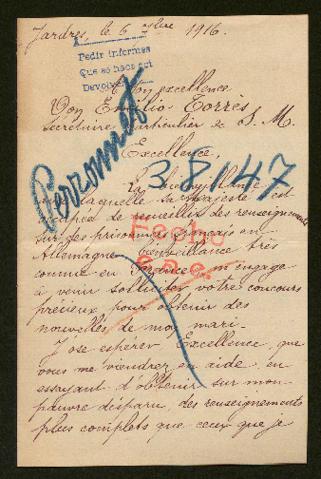 Jardres, le 6 7bre 1916.
Pedir informes
Que se hace act
Devolver
Son excellence
Don Emilio Torrès
Secrétaire particulier de S. M.
Perronnet
Excellence,
38147
La bienveillance
avec laquelle sa majesté s'est
occupée de recueillir des renseignements
sur des prisonniers français en
Fecho
Allemagne, bienveillance très
connue en France m'engage
à venir solliciter votre concours
précieux pour obtenir des
nouvelles de mon mari.
J'ose espérer, Excellence, que
vous me viendrez en aide en
essayant d'obtenir sur mon
pauvre disparu, des renseignements
plus complets que ceux que je